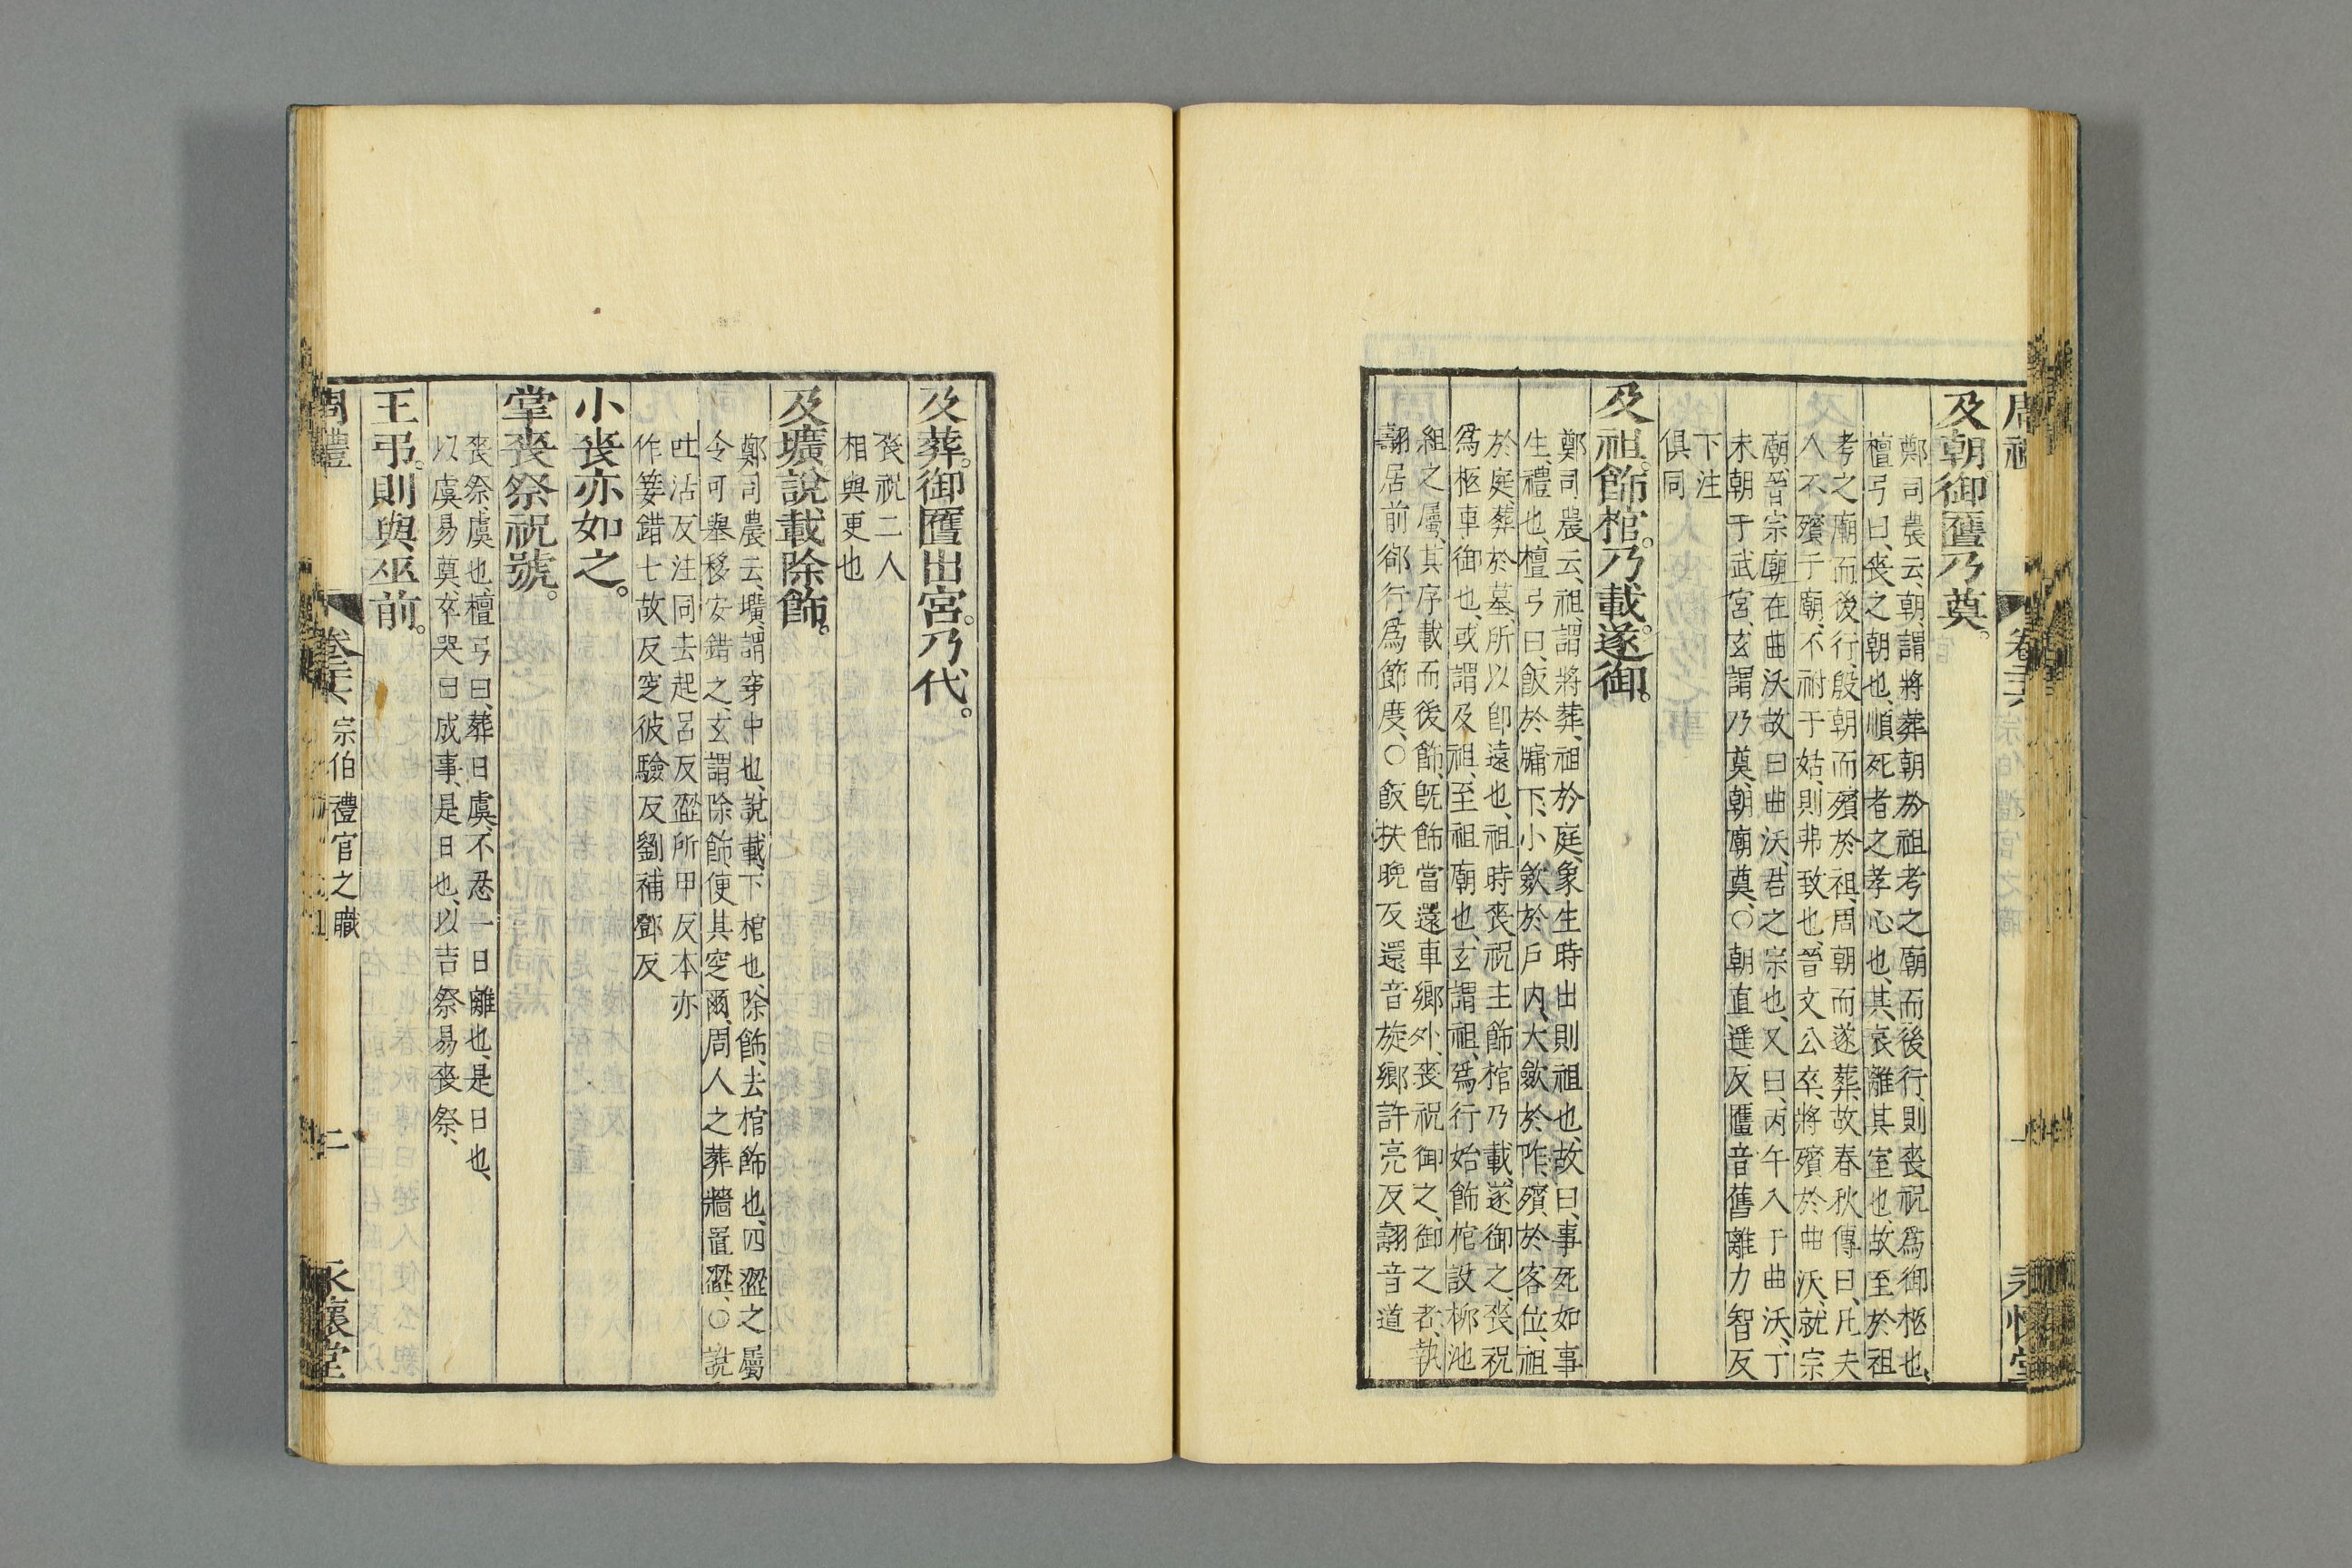 及朝御匶乃奠。
鄭司農云、朝、謂將葬朝於祖考之廟而後行、則喪祝爲御柩也、
檀弓曰、喪之朝也、順死者之孝心也、其哀離其室也、故至於祖
考之廟而後行、殷朝而殯於祖、周朝而遂葬、故春秋傳曰、凡夫
人不殯于廟、不祔于姑、則弗致也、晉文公卒、將殯於曲沃、就宗
廟、晉宗廟在曲沃、故曰曲沃、君之宗也、又曰、丙午入于曲沃、丁
未朝于武宮、玄謂乃奠、朝廟奠、○朝直遥反匶音舊離力智反
下注
俱同
及祖。飾棺。乃載。遂御。
鄭司農云、祖、謂將葬、祖於庭、象生時出則祖也、故曰、事死如事
生、禮也、檀弓曰、飯於牖下、小斂於戶内、大斂於阼、殯於客位、祖
於庭、葬於墓、所以卽遠也、祖時喪祝主飾棺乃載、遂御之、喪祝
爲柩車御也、或謂及祖、至祖廟也、玄謂祖、爲行始飾棺設柳池
組之屬、其序載而後飾、旣飾當還車鄉外、喪祝御之、御之者、執
翿居前卻行、爲節度、○飯扶晚反還音旋鄉許亮反翿音道
及葬。御匶出宮。乃代。
喪祝二人
相與更也
及壙說載除飾。
鄭司農云、壙、謂穿中也、說載、下棺也、除飾、去棺飾也、四翣之屬
令可舉移安錯之、玄謂除飾、便其窆爾、周人之葬牆置翣、○說
吐活反注同去起呂反翣所甲反本亦
作䈉錯七故反窆彼驗反劉補鄧反
小喪亦如之。
掌喪祭祝號。
喪祭、虞也、檀弓曰、葬日虞、不忍一日離也、是日也、
以虞易奠、卒哭曰成事、是日也、以吉祭易喪祭、
王弔。則與巫前。
周禮 卷二十六 宗伯禮官之職 二 永懷堂